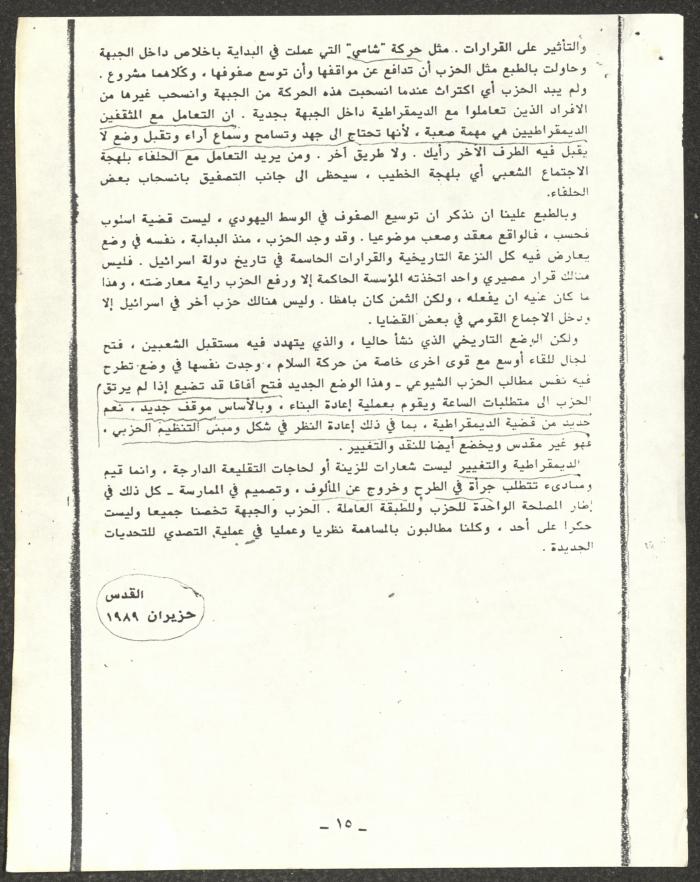 والتأثير على القرارات . مثل حركة "شاسي" التي عملت في البداية باخلاص داخل الجبهة
وحاولت بالطبع مثل الحزب أن تدافع عن مواقفها وأن توسع صفوفها ، وكلاهما مشروع .
ولم يبد الحزب أي اكتراث عندما انسحبت هذه الحركة من الجبهة وانسحب غيرها من
الافراد الذين تعاملوا مع الديمقراطية داخل الجبهة بجدية . ان التعامل مع المثقفين
الديمقراطيين هي مهمة صعبة ، لأنها تحتاج الى جهد وتسامح وسماع آراء وتقبل وضع لا
يقبل فيه الطرف الآخر رأيك . ولا طريق آخر . ومن يريد التعامل مع الحلفاء بلهجة
الاجتماع الشعبي أي بلهجة الخطيب ، سيحظى الى جانب التصفيق بانسحاب بعض
الحلفاء.
وبالطبع علينا ان نذكر ان توسيع الصفوف في الوسط اليهودي ، ليست قضية اسلوب
فحسب ، فالواقع معقد وصعب موضوعيا . وقد وجد الحزب ، منذ البداية ، نفسه في وضع
يعارض فيه كل النزعة التاريخية والقرارات الحاسمة في تاريخ دولة اسرائيل . فليس
هنالك قرار مصيري واحد اتخذته المؤسسة الحاكمة إلا ورفع الحزب راية معارضته ، وهذا
ما كان عليه ان يفعله ، ولكن الثمن كان باهظا . وليس هنالك حزب آخر في اسرائيل إلا
ودخل الاجماع القومي في بعض القضايا .
ولكن الوضع التاريخي الذي نشأ حاليا ، والذي يتهدد فيه مستقبل الشعبين ، فتح
المجال للقاء أوسع مع قوى اخرى خاصة من حركة السلام ، وجدت نفسها في وضع تطرح
فيه نفس مطالب الحزب الشيوعي ـ وهذا الوضع الجديد فتح آفاقا قد تضيع إذا لم يرتق
الحزب الى متطلبات الساعة ويقوم بعملية إعادة البناء ، وبالأساس موقف جديد ، نعم
جديد من قضية الديمقراطية ، بما في ذلك إعادة النظر في شكل ومبنى التنظيم الحزبي ،
فهو غير مقدس ويخضع أيضا للنقد والتغيير .
الديمقراطية والتغيير ليست شعارات للزينة أو لحاجات التقليعة الدارجة ، وانما قيم
ومبادىء تتطلب جرأة في الطرح وخروج عن المألوف ، وتصميم في الممارسة ـ كل ذلك في
إطار المصلحة الواحدة للحزب وللطبقة العاملة . الحزب والجبهة تخصنا جميعا وليست
حكرا على أحد ، وكلنا مطالبون بالمساهمة نظريا وعمليا في عملية التصدي للتحديات
الجديدة .
القدس
حزيران ١٩٨٩
ـ ١٥ ـ